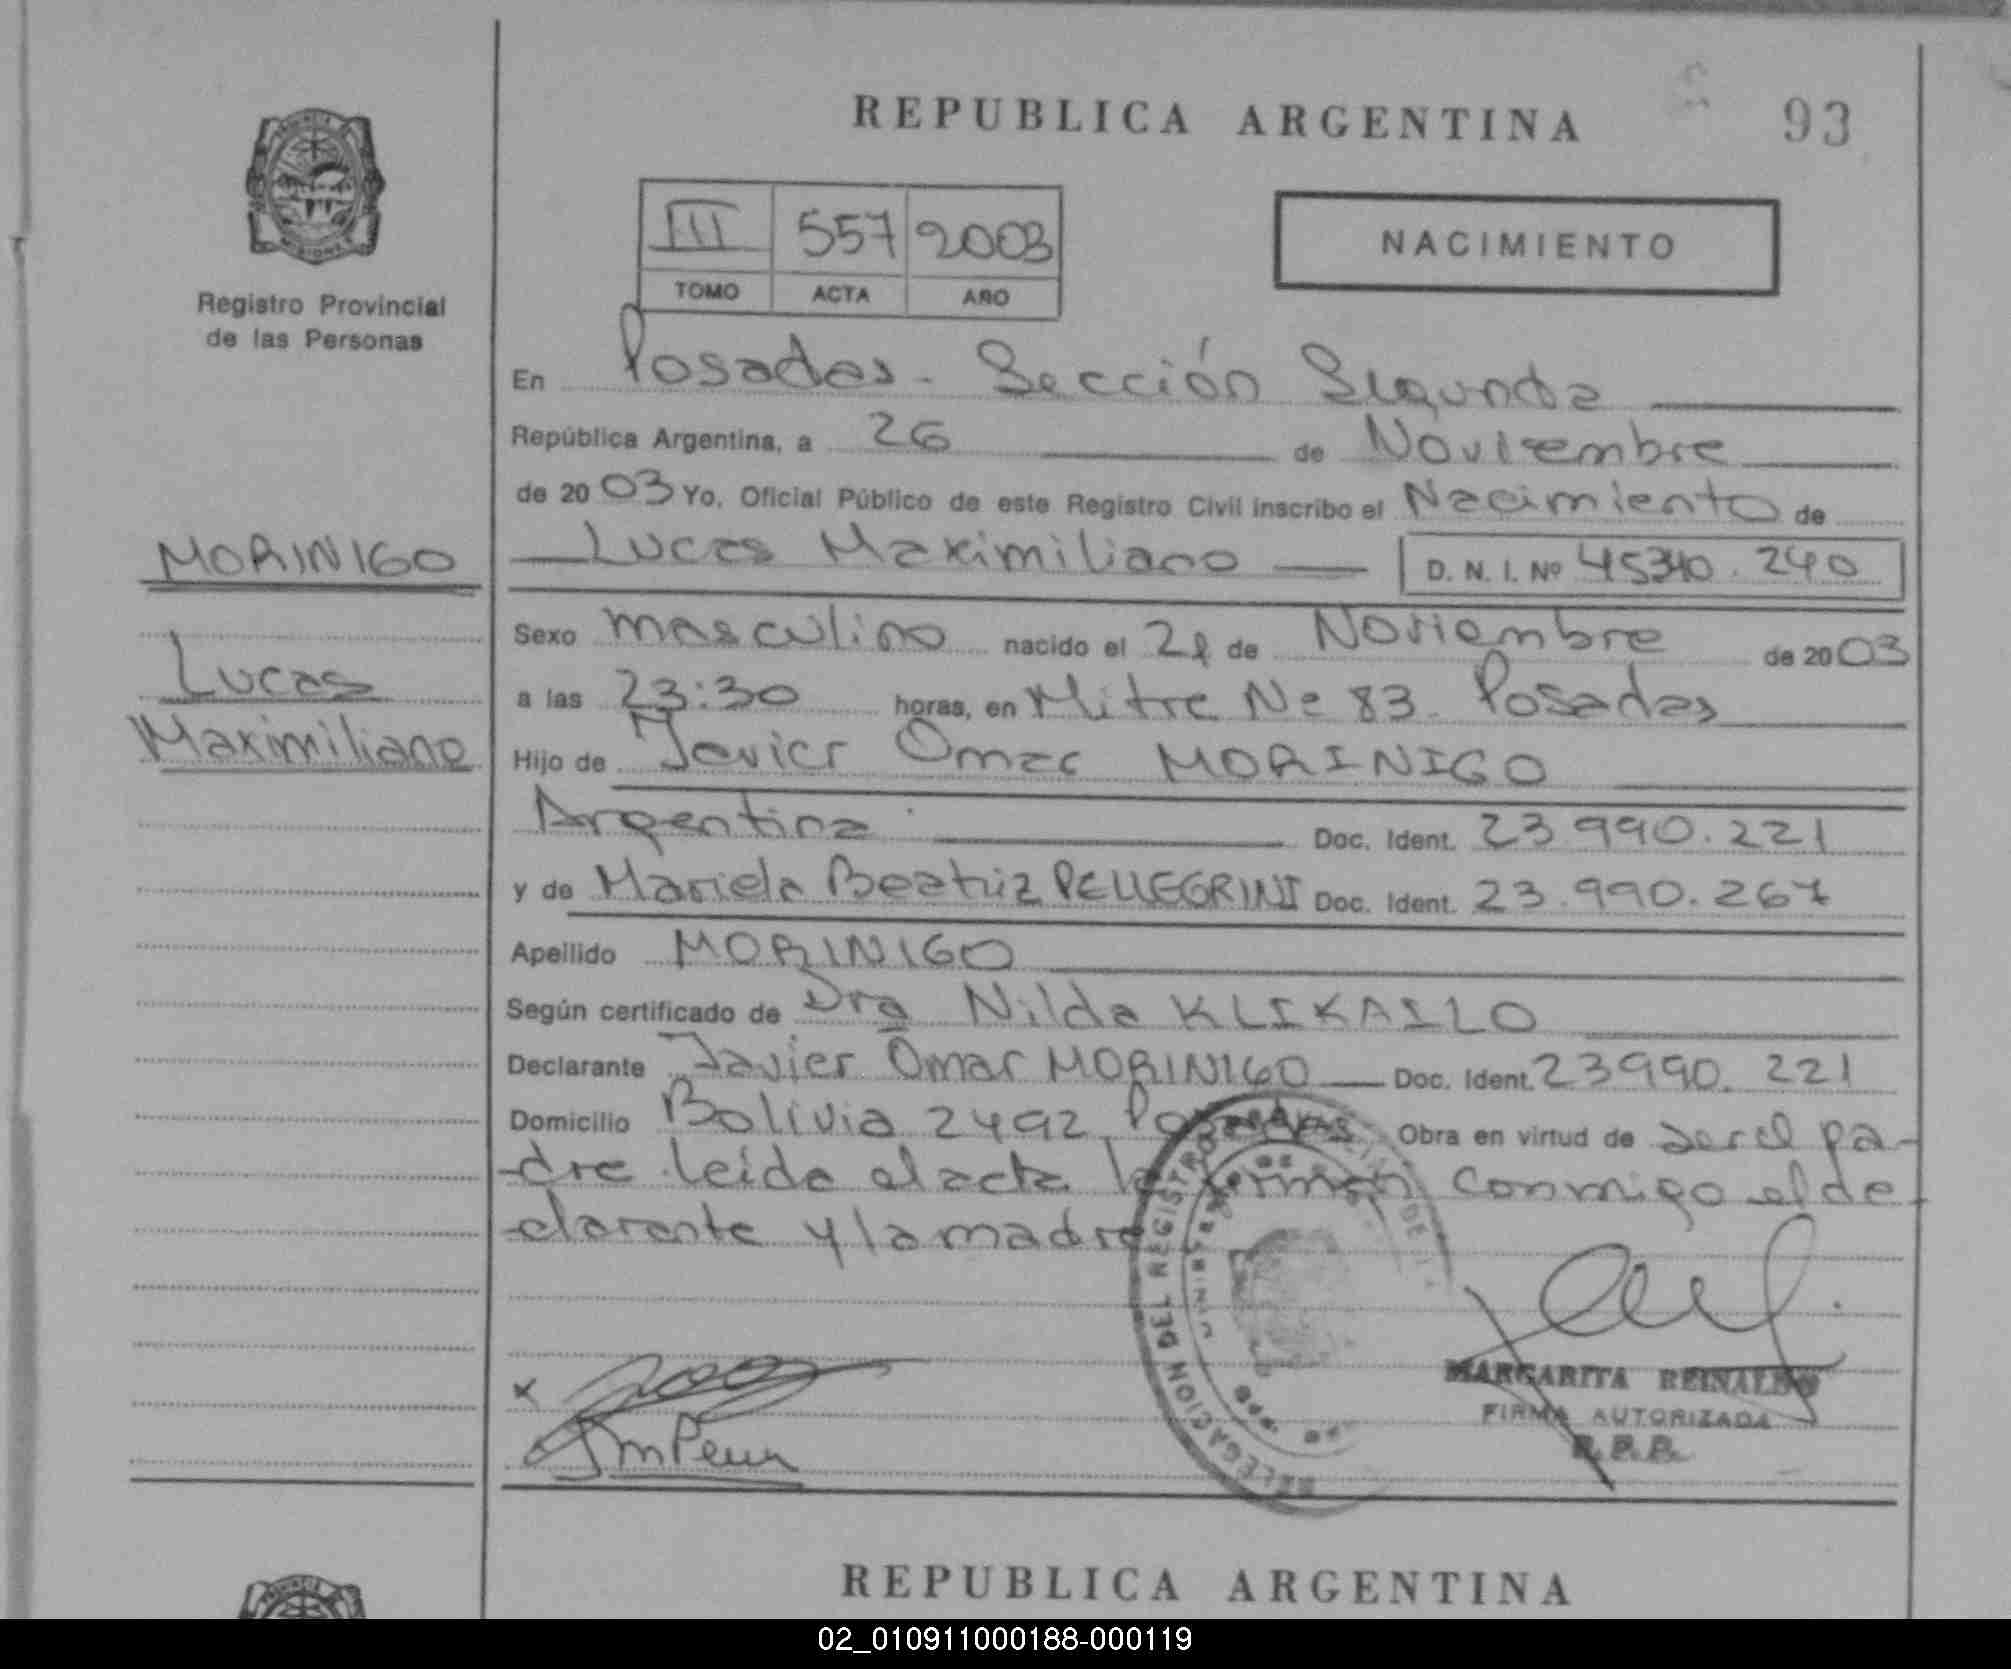 REPUBLICA ARGENTINA
93
III 557 2003
TOMO ACTA AÑO
NACIMIENTO
Registro Provincial
de las Personas
En Posadas - Sección Segunda
República Argentina, a 26 de Noviembre
de 2003 Yo, Oficial Público de este Registro Civil inscribo el Nacimiento de
Lucas Maximiliano D. N. I. Nº 45340.240
MORINIGO
Lucas
Maximiliano
Sexo masculino nacido el 21 de Noviembre de 2003
a las 23:30 horas, en Mitre Nº 83 - Posadas
Hijo de Javier Omar MORINIGO
Argentina Doc. Ident. 23.990.221
y de Mariela Beatriz PELLEGRINI Doc. Ident. 23.990.267
Apellido MORINIGO
Según certificado de Dra Nilda KLIKAILO
Declarante Javier Omar MORINIGO Doc. Ident. 23990.221
Domicilio Bolivia 2492 Posadas Obra en virtud de ser el pa-
dre leida el acta la firman conmigo el de-
clarante y la madre
DELEGACION DEL REGISTRO
MARGARITA REINALDO
FIRMA AUTORIZADA
R.P.P.
REPUBLICA ARGENTINA
02_010911000188-000119